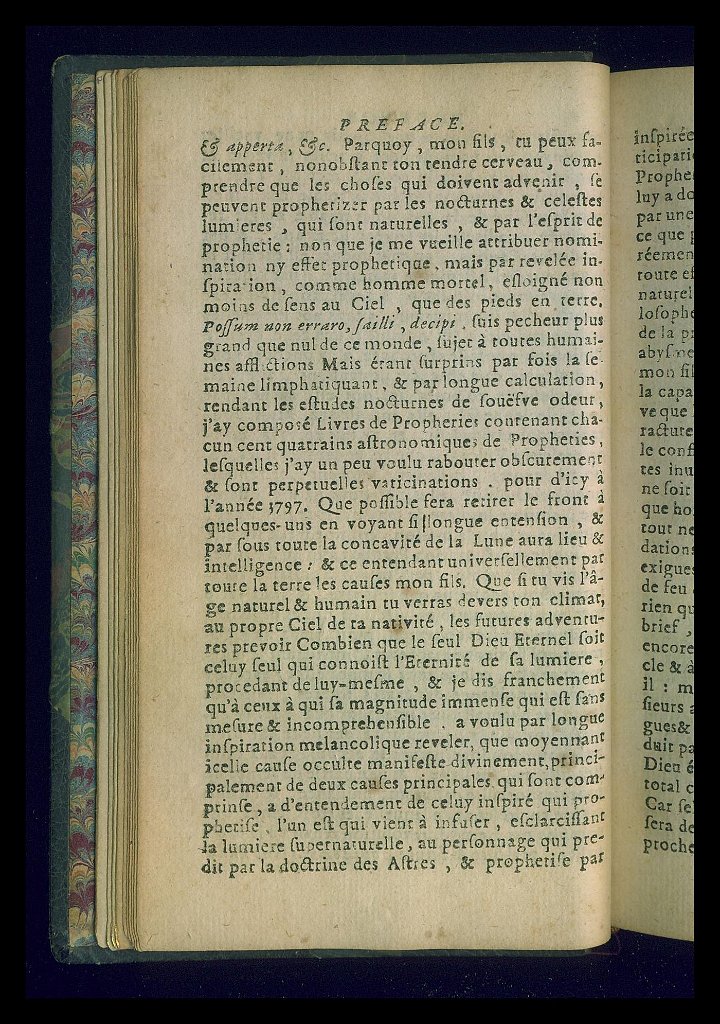 PREFACE.
& apperta, &c. Parquoy, mon fils, tu peux fa-
cilement, nonobſtant ton tendre cerveau, com-
prendre que les choſes qui doivent advenir, ſe
peuvent prophetizer par les nocturnes & celeſtes
lumieres, qui ſont naturelles, & par l'eſprit de
prophetie: non que je me vueille attribuer nomi-
nation ny effet prophetique, mais par revelée in-
ſpiration, comme homme mortel, eſloigné non
moins de ſens au Ciel, que des pieds en terre.
Poſſum non erraro, failli, decipi, ſuis pecheur plus
grand que nul de ce monde, ſujet à toutes humai-
nes afflictions Mais étant ſurprins par fois la ſe-
maine limphatiquant, & par longue calculation,
rendant les eſtudes nocturnes de ſouëfve odeur,
j'ay compoſé Livres de Propheries contenant cha-
cun cent quatrains aſtronomiques de Propheties,
leſquelles j'ay un peu voulu rabouter obſcurement
& ſont perpetuelles vaticinations. pour d'icy à
l'année 3797. Que poſſible fera retirer le front à
quelques-uns en voyant ſi longue entenſion, &
par ſous toute la concavité de la Lune aura lieu &
intelligence: & ce entendant univerſellement par
toute la terre les cauſes mon fils. Que ſi tu vis l'â-
ge naturel & humain tu verras devers ton climat,
au propre Ciel de ta nativité, les futures adventu-
res prevoir Combien que le ſeul Dieu Eternel ſoit
celuy ſeul qui connoiſt l'Eternité de ſa lumiere,
procedant de luy-meſme, & je dis franchement
qu'à ceux à qui ſa magnitude immenſe qui eſt ſans
meſure & incomprehenſible. a voulu par longue
inſpiration melancolique reveler, que moyennant
icelle cauſe occulte manifeſte divinement, princi-
palement de deux cauſes principales qui ſont com-
prinſe, a d'entendement de celuy inſpiré qui pro-
phetiſe, l'un eſt qui vient à infuſer, eſclarciſſant
la lumiere ſupernaturelle, au perſonnage qui pre-
dit par la doctrine des Aſtres, & prophetiſe par
inſpirée
ticipati
Prophe
luy a do
par une
ce que
réemen
toute ef
naturel
loſophe
de la p
abyſme
mon fil
la capa
ve que
racture
le conf
tes inu
ne ſoit
que ho
tout ne
dations
exigues
de feu
rien qu
brief,
encore
cle & à
il: m
ſieurs
gues&
duit pa
Dieu é
total c
Car ſe
ſera de
proche